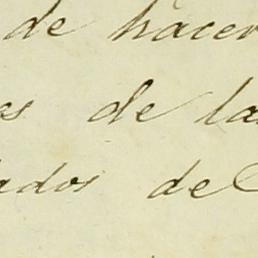 de hacer
es de la
ados de